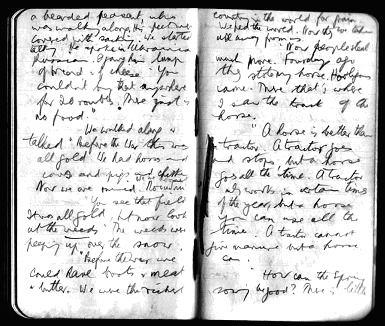 a bearded peasant, who
was walking along. His feet were
covered with sacking. We started
talking. He spoke in Ukrainian
Russian. I gave him lump
of bread & cheese. "You
couldn't buy that anywhere
for 20 roubles. There just is
no food."
We walked along &
talked. "Before the War this was
all gold. We had horses and
cows and pigs and chickens
Now we are ruined.
You see that field
It was all gold, but now look
at the weeds." The weeds were
peeping up over the snow.
"Before the war we
could have boots & meat
& butter. We were the richest
country in the world for grain.
We fed the world. Now they have taken
all away from us.
"Now people steal
much more. Four days ago
they stole my horse. Hooligans
came. There that's where
I saw the track of the
horse.
"A horse is better than
a tractor. A tractor goes
and stops, but a horse
goes all the time. A tractor
only works in certain times
of the year, but a horse
you can use all the
time. A tractor cannot
give manure but a horse
can.
"How can the Spring
sowing be good? There is little